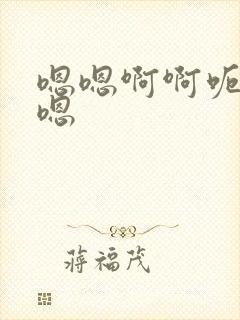 嗯嗯啊啊呃
嗯
蒋福茂